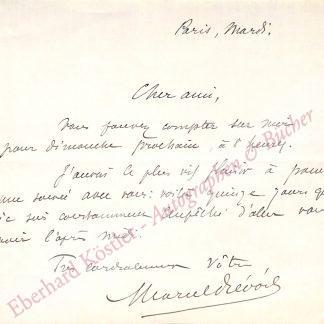 Paris, Mardi.
Cher ami,
Vous pouvez compter sur moi
pour dimanche prochain, à 8 heures.
J'aurai le plus vif plaisir à passer
une soirée avec vous: voilà quinze jours que
je suis constamment empêché d'aller vous
voir l'après midi.
Très cordialement Vôtre
Marcel Prévost
Eberhard Köstler - Autographen & Bücher